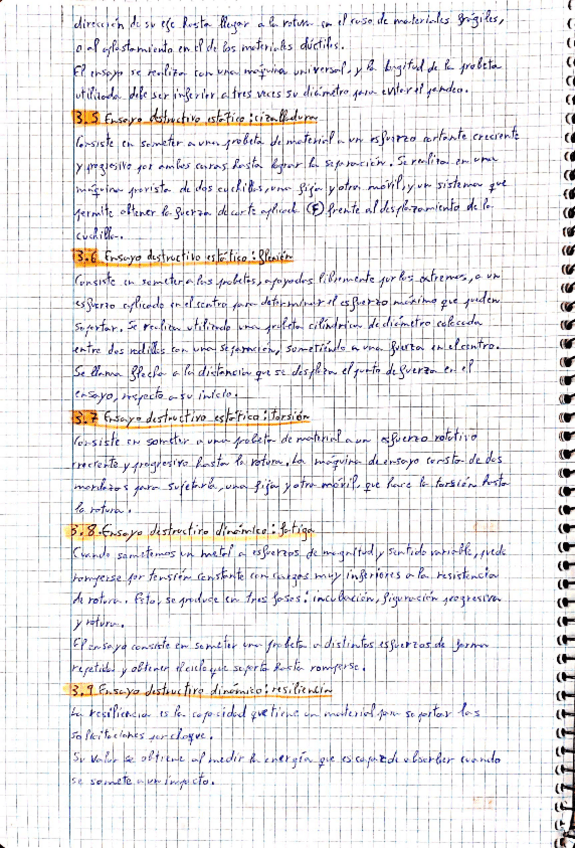 dirección de su eje hasta llegar a la rotura en el caso de materiales frágiles,
o al aplastamiento en el de los materiales dúctiles.
El ensayo se realiza con una máquina universal, y la longitud de la probeta
utilizada debe ser inferior a tres veces su diámetro para evitar el pandeo.
3.5 Ensayo destructivo estático: cizalladura
Consiste en someter a una probeta de material a un esfuerzo cortante creciente
y progresivo por ambas caras hasta lograr la separación. Se realiza en una
máquina provista de dos cuchillas, una fija y otra móvil, y un sistema que
permite obtener la fuerza de corte aplicada (F) frente al desplazamiento de la
cuchilla.
3.6 Ensayo destructivo estático: flexión
Consiste en someter a las probetas, apoyadas libremente por los extremos, a un
esfuerzo aplicado en el centro para determinar el esfuerzo máximo que pueden
soportar. Se realiza utilizando una probeta cilíndrica de diámetro colocada
entre dos rodillos con una separación, sometiéndo a una fuerza en el centro.
Se llama flecha a la distancia que se desplaza el punto de fuerza en el
ensayo, respecto a su inicio.
3.7 Ensayo destructivo estático: torsión
Consiste en someter a una probeta de material a un esfuerzo rotativo
creciente y progresivo hasta la rotura. La máquina de ensayo consta de dos
mordazas para sujetarla, una fija y otra móvil, que hace la torsión hasta
la rotura.
3.8. Ensayo destructivo dinámico: fatiga
Cuando sometemos un metal a esfuerzos de magnitud y sentido variable, puede
romperse por tensión constante con cargas muy inferiores a la resistencia
de rotura. Esto, se produce en tres fases: incubación, figuración progresiva
y rotura.
El ensayo consiste en someter una probeta a distintos esfuerzos de forma
repetida y obtener el ciclo que soporta hasta romperse.
3.9 Ensayo destructivo dinámico: resiliencia
La resiliencia es la capacidad que tiene un material para soportar las
solicitaciones por choque.
Su valor se obtiene al medir la energía que es capaz de absorber cuando
se somete a un impacto.